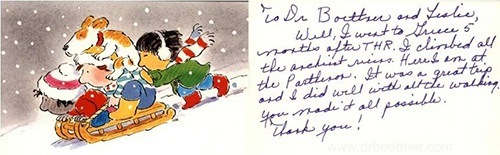 To Dr Boettner and Leslie,
Well, I went to Greece 5
months after THR. I climbed all
the ancient ruins. Here I am at
the Parthenon. It was a great trip
and I did well with all the walking.
You made it all possible.
Thank you!
www.drboettner.com